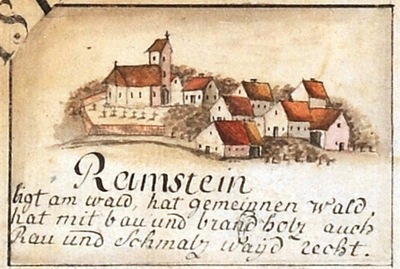 Ramstein
ligt am wald, hat gemeinen wald
hat mit bau und brand holz auch
Rau und Schmalz wayd recht.